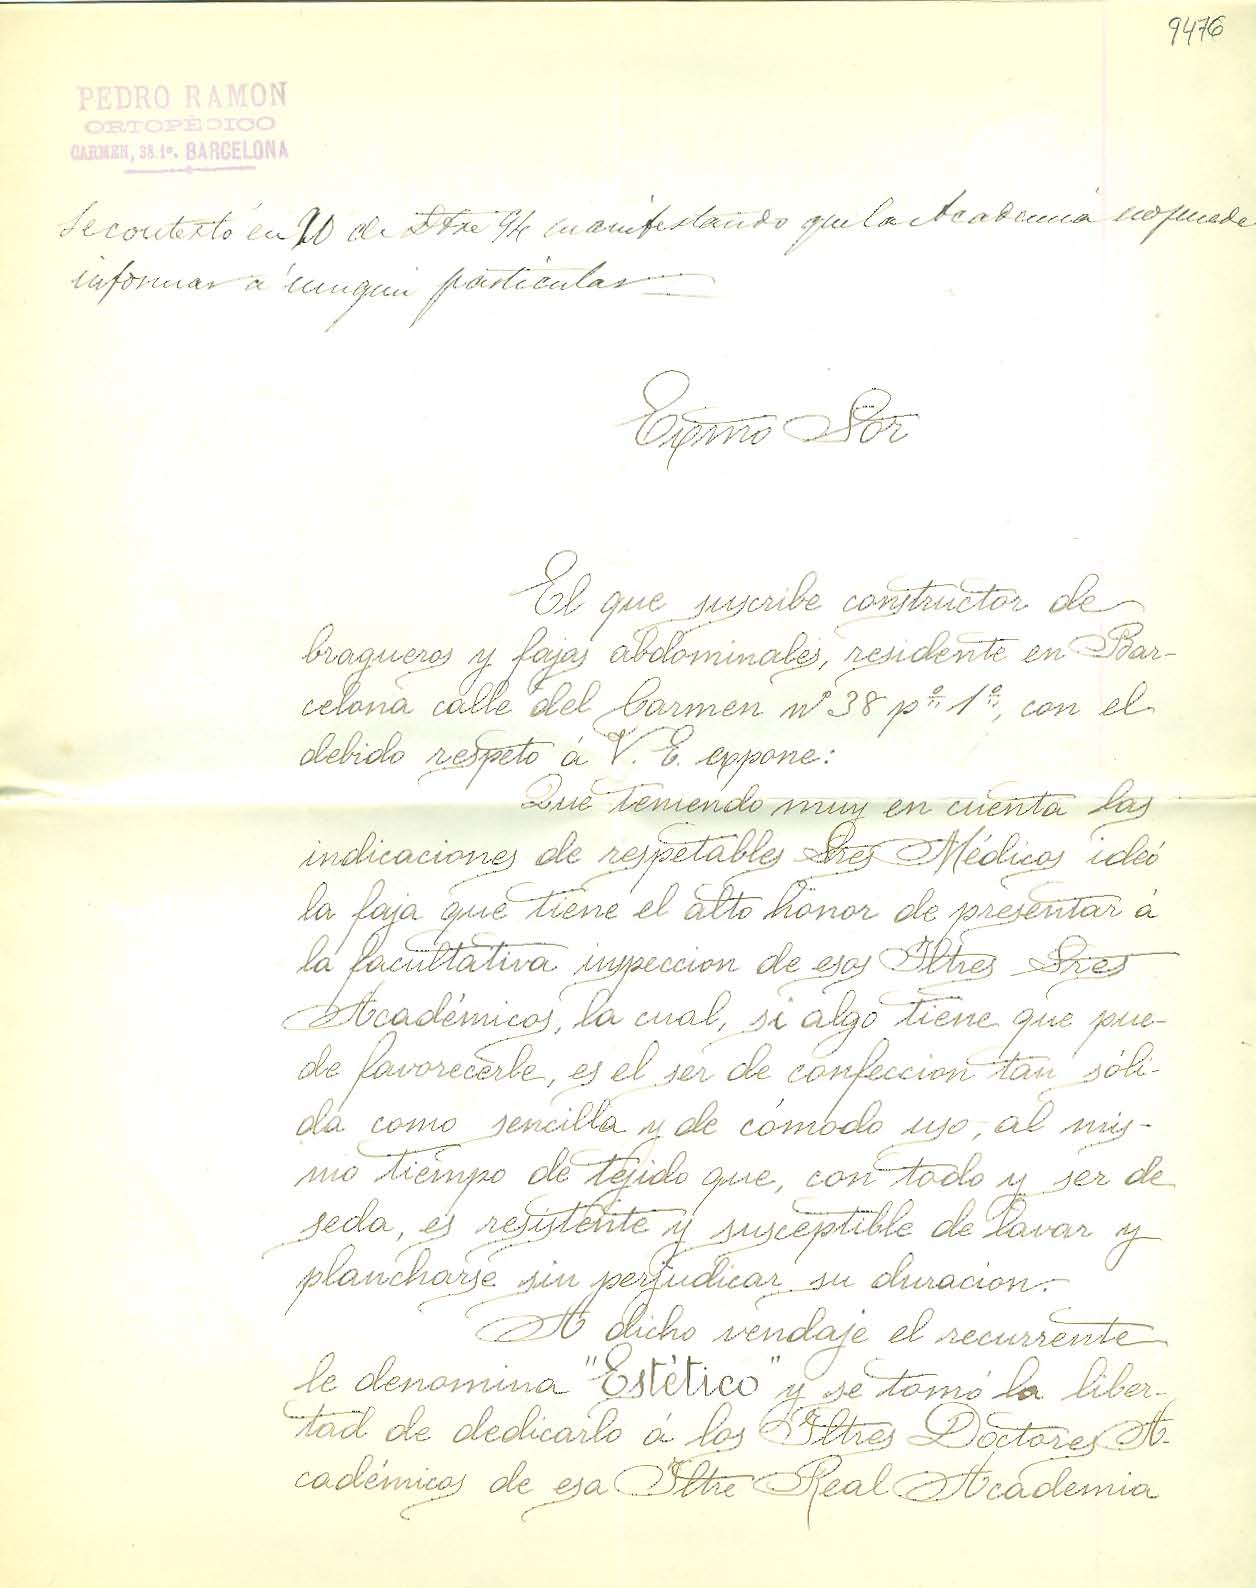 9476
PEDRO RAMON
ORTOPÈDICO
CARMEN, 38, 1º. BARCELONA
Se contestó en 20 de Dbre 94 manifestando que la Academia no puede
informar á ningun particular
Exmo Sor
El que suscribe constructor de
bragueros y fajas abdominales, residente en Bar-
celona calle del Carmen nº 38 pº 1º, con el
debido respeto á V. E. expone:
Que teniendo muy en cuenta las
indicaciones de respetables Sres Médicos ideó
la faja que tiene el alto honor de presentar á
la facultativa inspeccion de esos Iltres Sres
Académicos, la cual, si algo tiene que pue-
de favorecerle, es el ser de confeccion tan sóli-
da como sencilla y de cómodo uso, al mis-
mo tiempo de tejido que, con todo y ser de
seda, es resistente y susceptible de lavar y
plancharse sin perjudicar su duracion.
A dicho vendaje el recurrente
le denomina "Estético" y se tomó la liber-
tad de dedicarlo á los Iltres Doctores A-
cadémicos de esa Iltre Real Academia